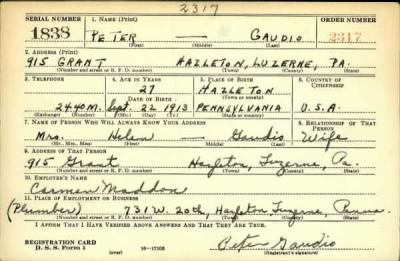 2317
SERIAL NUMBER 1. NAME (Print) ORDER NUMBER
1838 PETER — GAUDIO 2317
(First) (Middle) (Last)
2. ADDRESS (Print)
915 GRANT HAZLETON, LUZERNE, PA.
(Number and street or R. F. D. number) (Town) (County) (State)
3. TELEPHONE 4. AGE IN YEARS 5. PLACE OF BIRTH 6. COUNTRY OF CITIZENSHIP
27 HAZLETON
DATE OF BIRTH (Town or county)
2440M. Sept. 22 1913 PENNSYLVANIA U.S.A.
(Exchange) (Number) (Mo.) (Day) (Yr.) (State or country)
7. NAME OF PERSON WHO WILL ALWAYS KNOW YOUR ADDRESS 8. RELATIONSHIP OF THAT PERSON
Mrs. Helen — Gaudio Wife
(Mr., Mrs., Miss) (First) (Middle) (Last)
9. ADDRESS OF THAT PERSON
915 Grant Hazleton, Luzerne, Pa.
(Number and street or R. F. D. number) (Town) (County) (State)
10. EMPLOYER'S NAME
Carmen Maddon
11. PLACE OF EMPLOYMENT OR BUSINESS
(Plumber) 731 W. 20th, Hazleton, Luzerne, Penna.
(Number and street or R. F. D. number) (Town) (County) (State)
I AFFIRM THAT I HAVE VERIFIED ABOVE ANSWERS AND THAT THEY ARE TRUE.
REGISTRATION CARD
D. S. S. Form 1 16—17105 Peter Gaudio
(Registrant's signature)